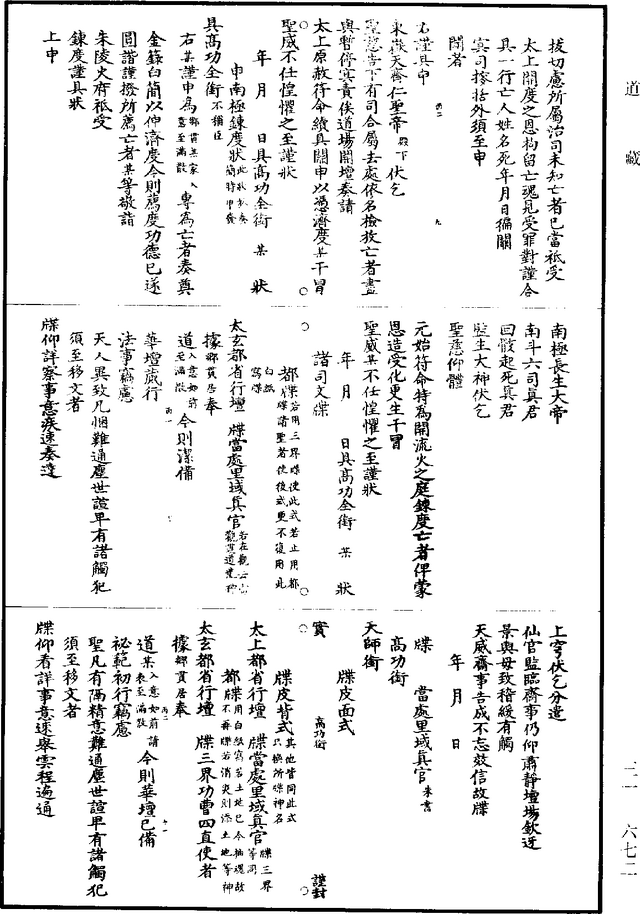 道藏
三一 六七二
拔切慮所屬治司未知亡者已當祇受
太上開度之恩拘留亡魂見受罪對謹合
具一行亡人姓名死年月日徧關
冥司捴括外須至申
聞者
右謹具申
東嶽天齊仁聖帝 殿下 伏乞
聖慈告下有司合屬去處依名檢放亡者盡
與暫停冥責俟道場開壇奏請
太上原赦符命續具關申以憑濟度某干冒
聖威不任惶懼之至謹狀
年 月 日具高功全銜 某 狀
申南極鍊度狀
具高功全銜 不稱臣
右某謹申為 鄉貫某家入意至滿散 專為亡者奏真
金籙白簡以伸濟度今則薦度功德已遂
圓諧謹撥所薦亡者某等敬詣
朱陵火府祇受
鍊度謹具狀
上申
南極長生大帝
南斗六司真君
回骸起死真君
監生大神伏乞
聖慈仰體
元始符命特為開流火之庭鍊度亡者俾蒙
恩造受化更生干冒
聖威某不任惶懼之至謹狀
年 月 日具高功全銜 某 狀
諸司文牒
都牒 若用三界牒使此式若止用都牒請聖者使後式更不復用此
太玄都省行壇 牒當處里域真官
據 鄉貫居奉
道 入意如前至滿散 今則潔備
華壇歲行
法事竊慮
天人異致凡悃難通塵世諠卑有諸觸犯
須至移文者
牒仰詳察事意疾速奏達
上穹伏乞分遣
仙官監臨齋事仍仰肅靜壇場欽迓
景輿毋致稽緩有觸
天威齋事告成不忘效信故牒
年 月 日
牒 當處里域真官 朱書
高功銜
天師銜
牒皮面式
實 高功銜 謹封
牒皮背式 其他皆同此式只換所牒神名
太上都省行壇 牒當處里域真官 牒三界等同
都牒
太玄都省行壇 牒三界功曹四直使者
據 鄉貫居奉
道 某入意如前請 某表至滿散 今則華壇已備
祕範初行竊慮
聖凡有隔精意難通塵世諠卑有諸觸犯
須至移文者
牒仰看詳事意速舉雲程遍通